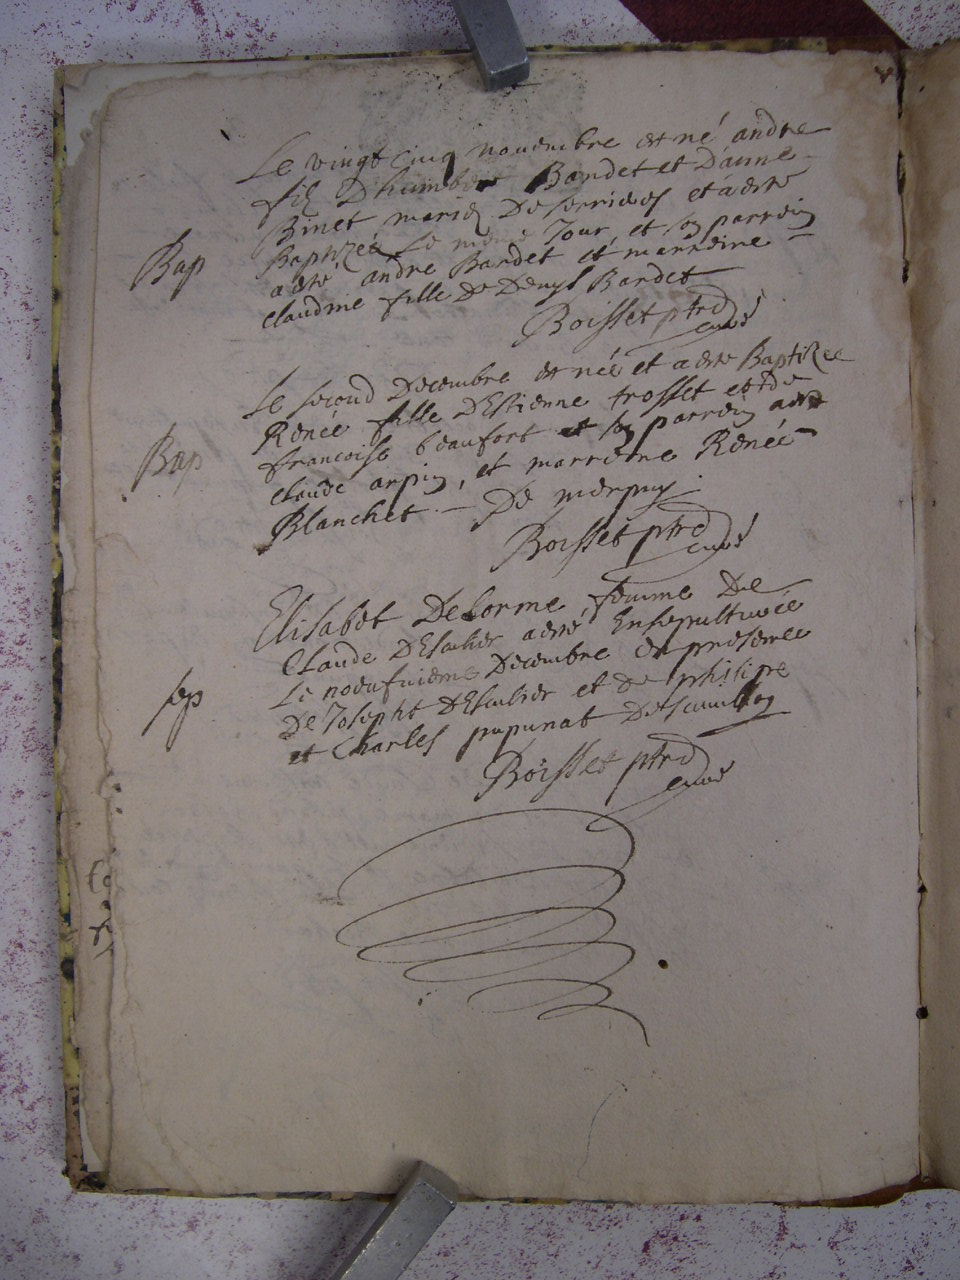 Le vingt cinq novembre est né andre
fils Dhumbert Bardet et Danne
Binet mariés De serrieres et a este
Bap
Baptizée Le même Jour, et son parrein
a este andre Bardet et marreine
claudine fille De Denys Bardet
Boisset ptre
curé
Le second Decembre est née et a este Baptizée
Renée fille DEstienne trosset et de
Bap
francoise beaufort et son parrein a este
claude arpin, et marreine Renée
Blanchet De
Boisset ptre
curé
Elisabet DeLorme femme De
Claude a esté Ensepulturée
Le noeufuieme Decembre En presence
sep
De Joseph et de philipe
et Charles pupunat
Boisset ptre
curé